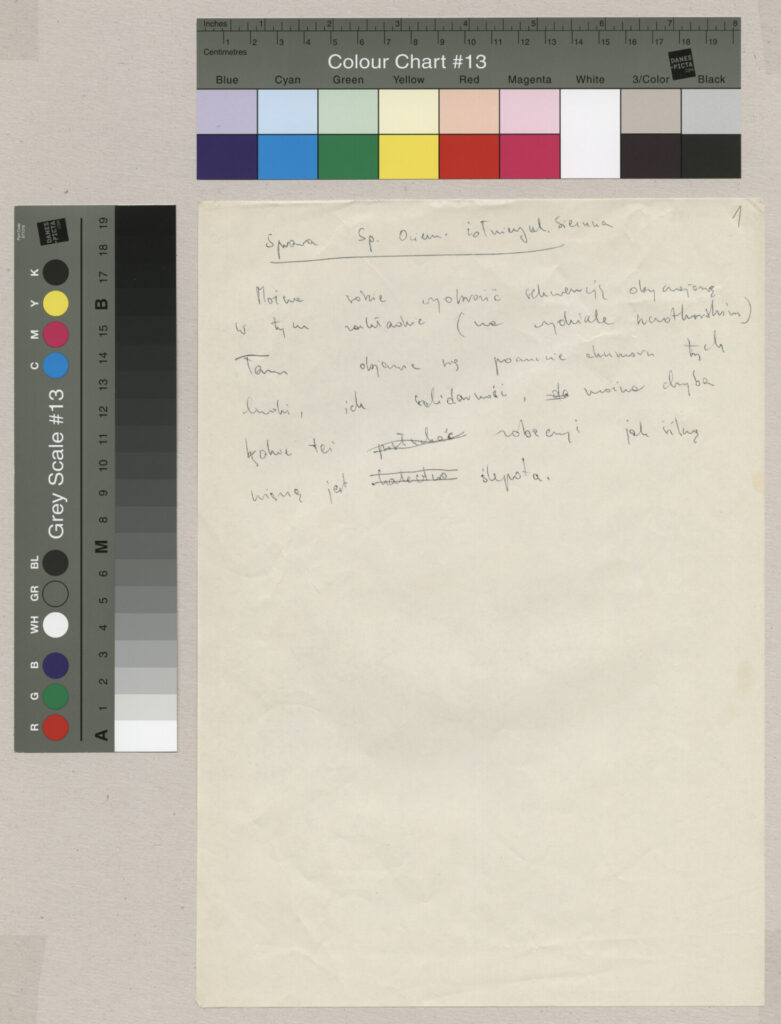 Inches 1 2 3 4 5 6 7 8
Centimetres 1 2 3 4 5 6 7 8 9 10 11 12 13 14 15 16 17 18 19
Colour Chart #13
DANES
-PICTA
.COM
Blue Cyan Green Yellow Red Magenta White 3/Color Black
Grey Scale #13
DANES
-PICTA
.COM
R G B WH GR BL C M Y K
A 1 2 3 4 5 6 M 8 9 10 11 12 13 14 15 B 17 18 19
1
Sprawa Sp. Ociem. Sienna
Można sobie wyobrazić sekwencję obyczajową
w tym zakładzie (na wydziale szczotkarskim)
Tam objawia się poczucie humoru tych
ludzi, ich solidarność, da można chyba
będzie też posłuchać zobaczyć jak silną
więzią jest kalectwo ślepota.